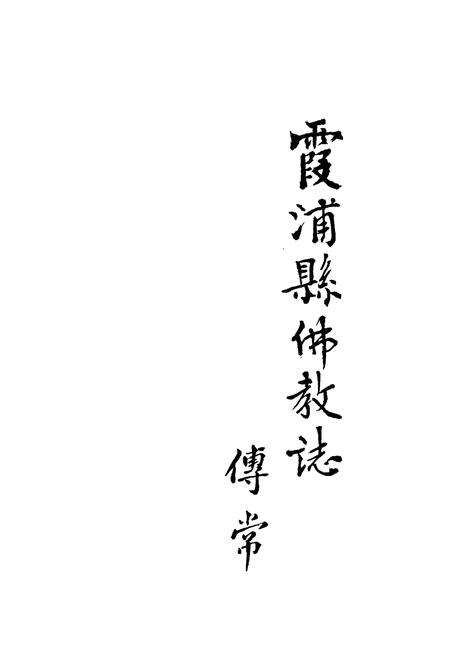 霞浦縣佛教誌
傳常